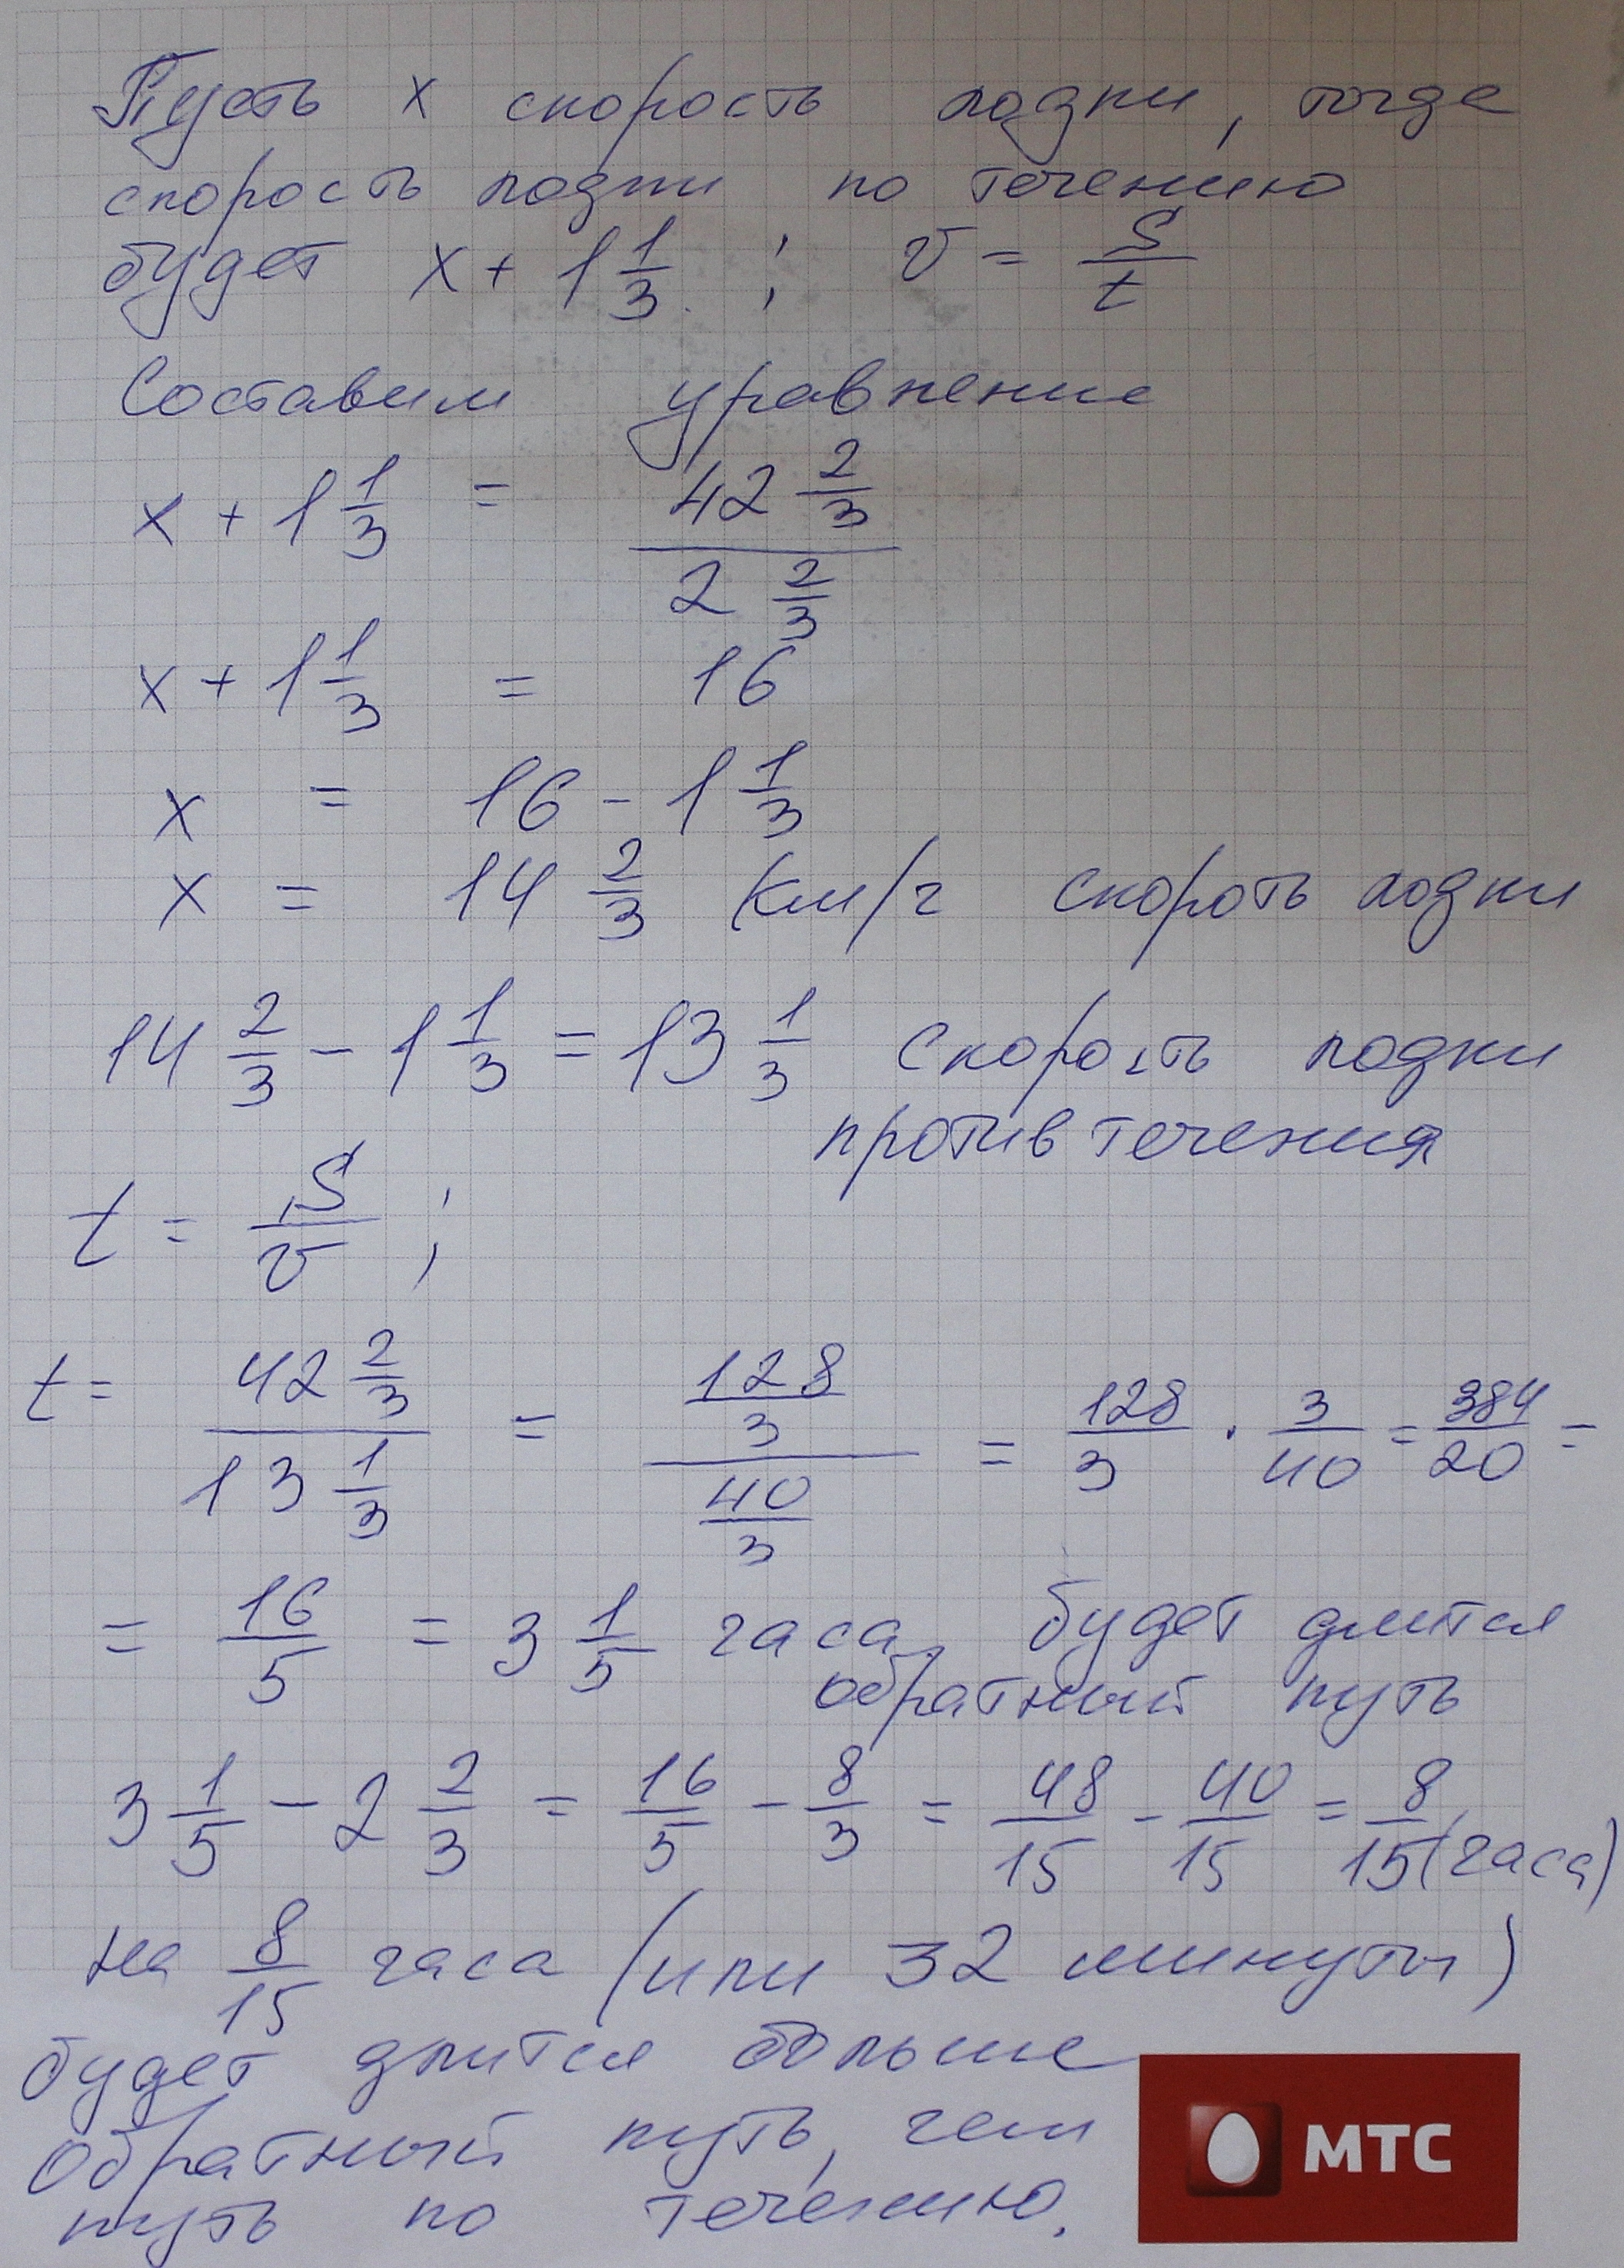 Пусть x скорость лодки, тогда
скорость лодки по течению
будет x + 1 1/3 ; v = S/t
Составим уравнение
x + 1 1/3 = (42 2/3)/(2 2/3)
x + 1 1/3 = 16
x = 16 - 1 1/3
x = 14 2/3 км/ч скороть лодки
14 2/3 - 1 1/3 = 13 1/3 скорость лодки
против течения
t = S/v ;
t = (42 2/3)/(13 1/3) = (128/3)/(40/3) = 128/3 · 3/40 = 384/20 =
= 16/5 = 3 1/5 часа будет длится
обратный путь
3 1/5 - 2 2/3 = 16/5 - 8/3 = 48/15 - 40/15 = 8/15 (часа)
на 8/15 часа (или 32 минуты)
будет длится больше
обратный путь, чем
путь по течению.
МТС